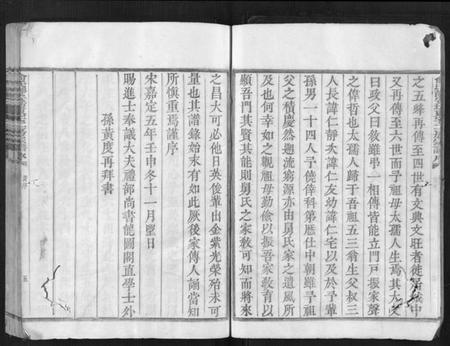 之五縣再傳至四世有文典文旺者徙
又再傳至六世而予祖母太孺人生焉其大父
曰政父曰敘雖弔一相傳皆能立門戸振家聲
之偉哲也太孺人歸于吾祖五三翁生父叔三
人長諱仁靜次諱仁友幼諱仁宅以及於予輩
孫男一十四人予僥倖科第歷仕中朝雖予祖
父之積慶然廻流窮源亦由舅氏家之遺風所
及也何幸如之觀祖母勤儉以振吾家敎育以
顯吾門其賢其能則舅氏之家敎可知而將來
之昌大可必他日英俊軰出金紫光榮殆未可
量也其譜錄始末有如此厥後家傳人誦當知
所慎重焉謹序
宋嘉定五年壬申冬十一月望日
賜進士奉議大夫禮部尚書龍圖閣直學士外
孫黃度再拜書